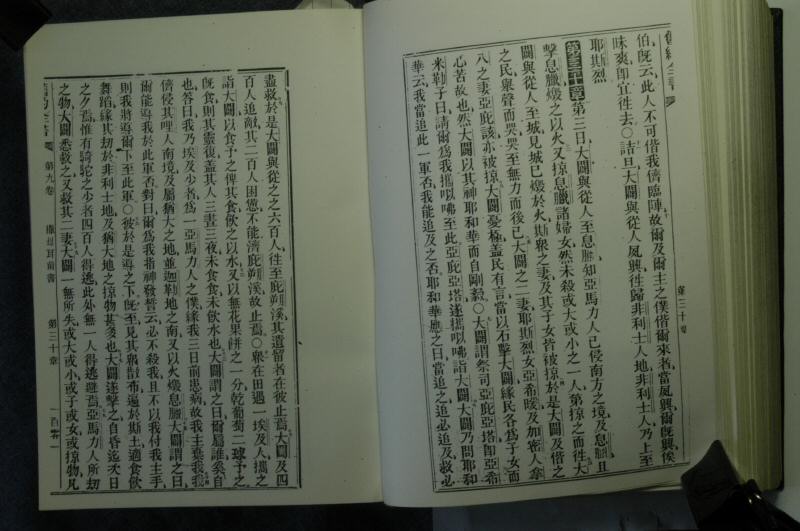 舊約全書
伯旣云此人不可偕我儕臨陣故爾及爾主之僕偕爾來者當夙興爾旣興俟
昧爽卽宜徃去○詰旦大闢與從人夙興徃歸非利士人地非利士人乃上至
耶斯烈
第三十章第三日大闢與從人至息臘知亞馬力人已侵南方之境及息臘且
擊息臘燬之以火又掠息臘諸婦女然未殺或大或小之一人第掠之而徃大
闢與從人至城見城已燬於火斯衆之妻及其子女皆被掠於是大闢及偕之
之民衆聲而哭哭至無力而後已大闢之二妻耶斯烈女亞希暖及加密人拿
八之妻亞庇該亦被掠大闢憂極蓋民有言當以石擊大闢緣民各爲子女而
心苦故也然大闢以其神耶和華而自剛毅○大闢謂祭司亞庇亞塔卽亞希
米勒子曰請爾爲我攜以咈至此亞庇亞塔遂攜以咈詣大闢大闢乃問耶和
華云我當追此一軍否我能追及之否耶和華應之曰當追之追必追及救必
第三十章
盡救於是大闢與從之之六百人徃至庇朔溪其遺留者在彼止焉大闢及四
百人追敵其二百人困憊不能濟庇朔溪故止焉○衆在田遇一埃及人攜之
詣大闢以食予之俾其食飮之以水又以無花果餅之一分乾葡萄二球予之
旣食則其靈復蓋其人三晝三夜未食食未飮水也大闢謂之曰爾屬誰奚自
也答曰我乃埃及少者爲一亞馬力人之僕緣我三日前患病故我主棄我我
儕侵其哩人南境及屬猶大之地並迦勒地之南又以火燬息臘大闢謂之曰
爾能導我於此軍否對曰爾爲我指神發誓云必不殺我且不以我付我主手
則我將導爾下至此軍○彼於是導之下旣至見其衆散布遍於斯土適食飮
舞蹈緣其刼於非利士地及猶大地之掠物甚多也大闢遂擊之自昏迄次日
之夕焉惟有騎駝之少者四百人得逃此外無一人得逃避焉亞馬力人所刼
之物大闢悉救之又救其二妻大闢一無所失或大或小或子或女或掠物凡
舊約全書 第九卷 撒母耳前書 第三十章 一百零一